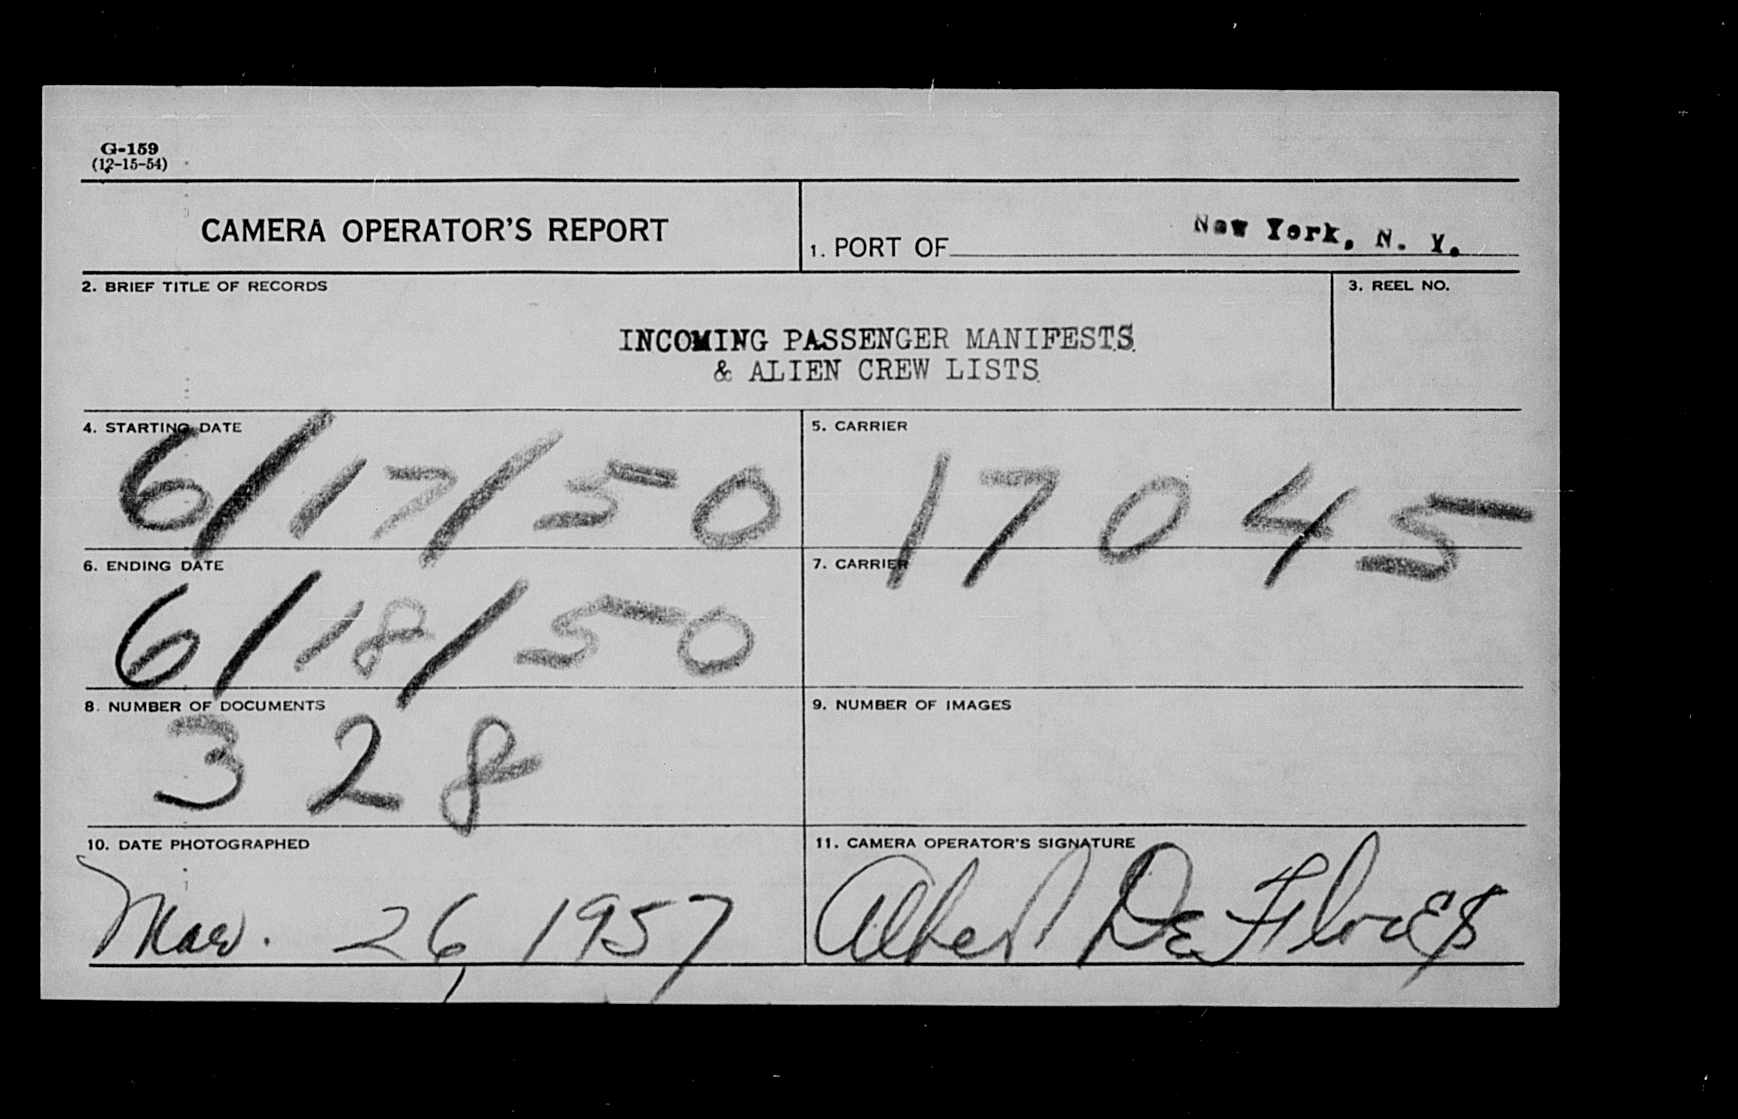 G-159
(12-15-54)
CAMERA OPERATOR'S REPORT
1. PORT OF New York, N. Y.
2. BRIEF TITLE OF RECORDS
3. REEL NO.
INCOMING PASSENGER MANIFESTS
& ALIEN CREW LISTS
4. STARTING DATE
6/17/50
5. CARRIER
17045
6. ENDING DATE
6/18/50
7. CARRIER
8. NUMBER OF DOCUMENTS
328
9. NUMBER OF IMAGES
10. DATE PHOTOGRAPHED
Mar. 26, 1957
11. CAMERA OPERATOR'S SIGNATURE
Albert DeFlores